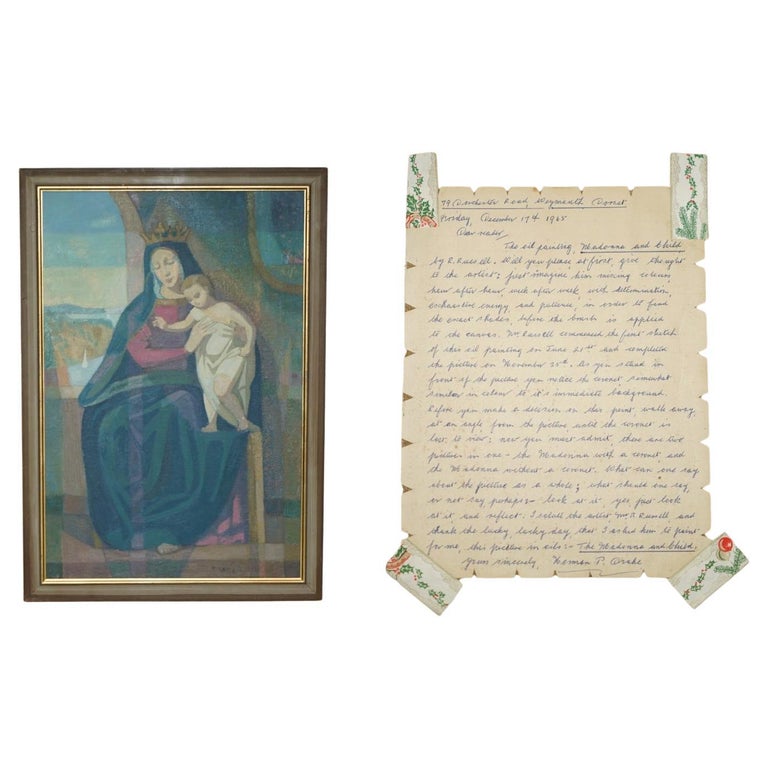 79 Dorchester Road Weymouth Dorset
December 17th 1965
Dear reader,
The oil painting, Madonna and Child
by R. Russell. Will you please at first, give thought
to the artist; just imagine him mixing colours
hour after hour, week after week, with determination,
exhaustive energy, and patience, in order to find
the exact shades, before the brush is applied
to the canvas. Mr Russell commenced the first sketch
of this oil painting on June 21st and completed
the picture on November 25th. As you stand in
front of the picture you notice the coronet, somewhat
similar in colour to it's immediate background.
Before you make a decision on this point, walk away,
at an angle from the picture until the coronet is
lost, to view; now you must admit, there are two
pictures in one - the Madonna with a coronet, and
the Madonna without a coronet. What can one say
about the picture as a whole; what should one say,
or not say, perhaps - look at it, yes just look
at it, and reflect. I salute the artist Mr R. Russell and
thank the lucky, lucky day, that I asked him to paint
for me, this picture in oils :- The Madonna and Child.
Yours sincerely, Herman P.